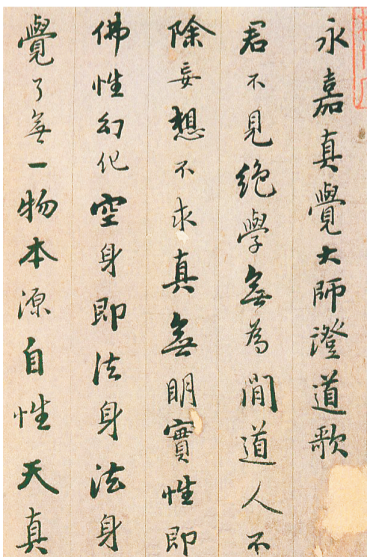 永嘉真覺大師澄道歌
君不見絕學無為閒道人不
除妄想不求真無明實性即
佛性幻化空身即法身法身
覺了無一物本源自性天真